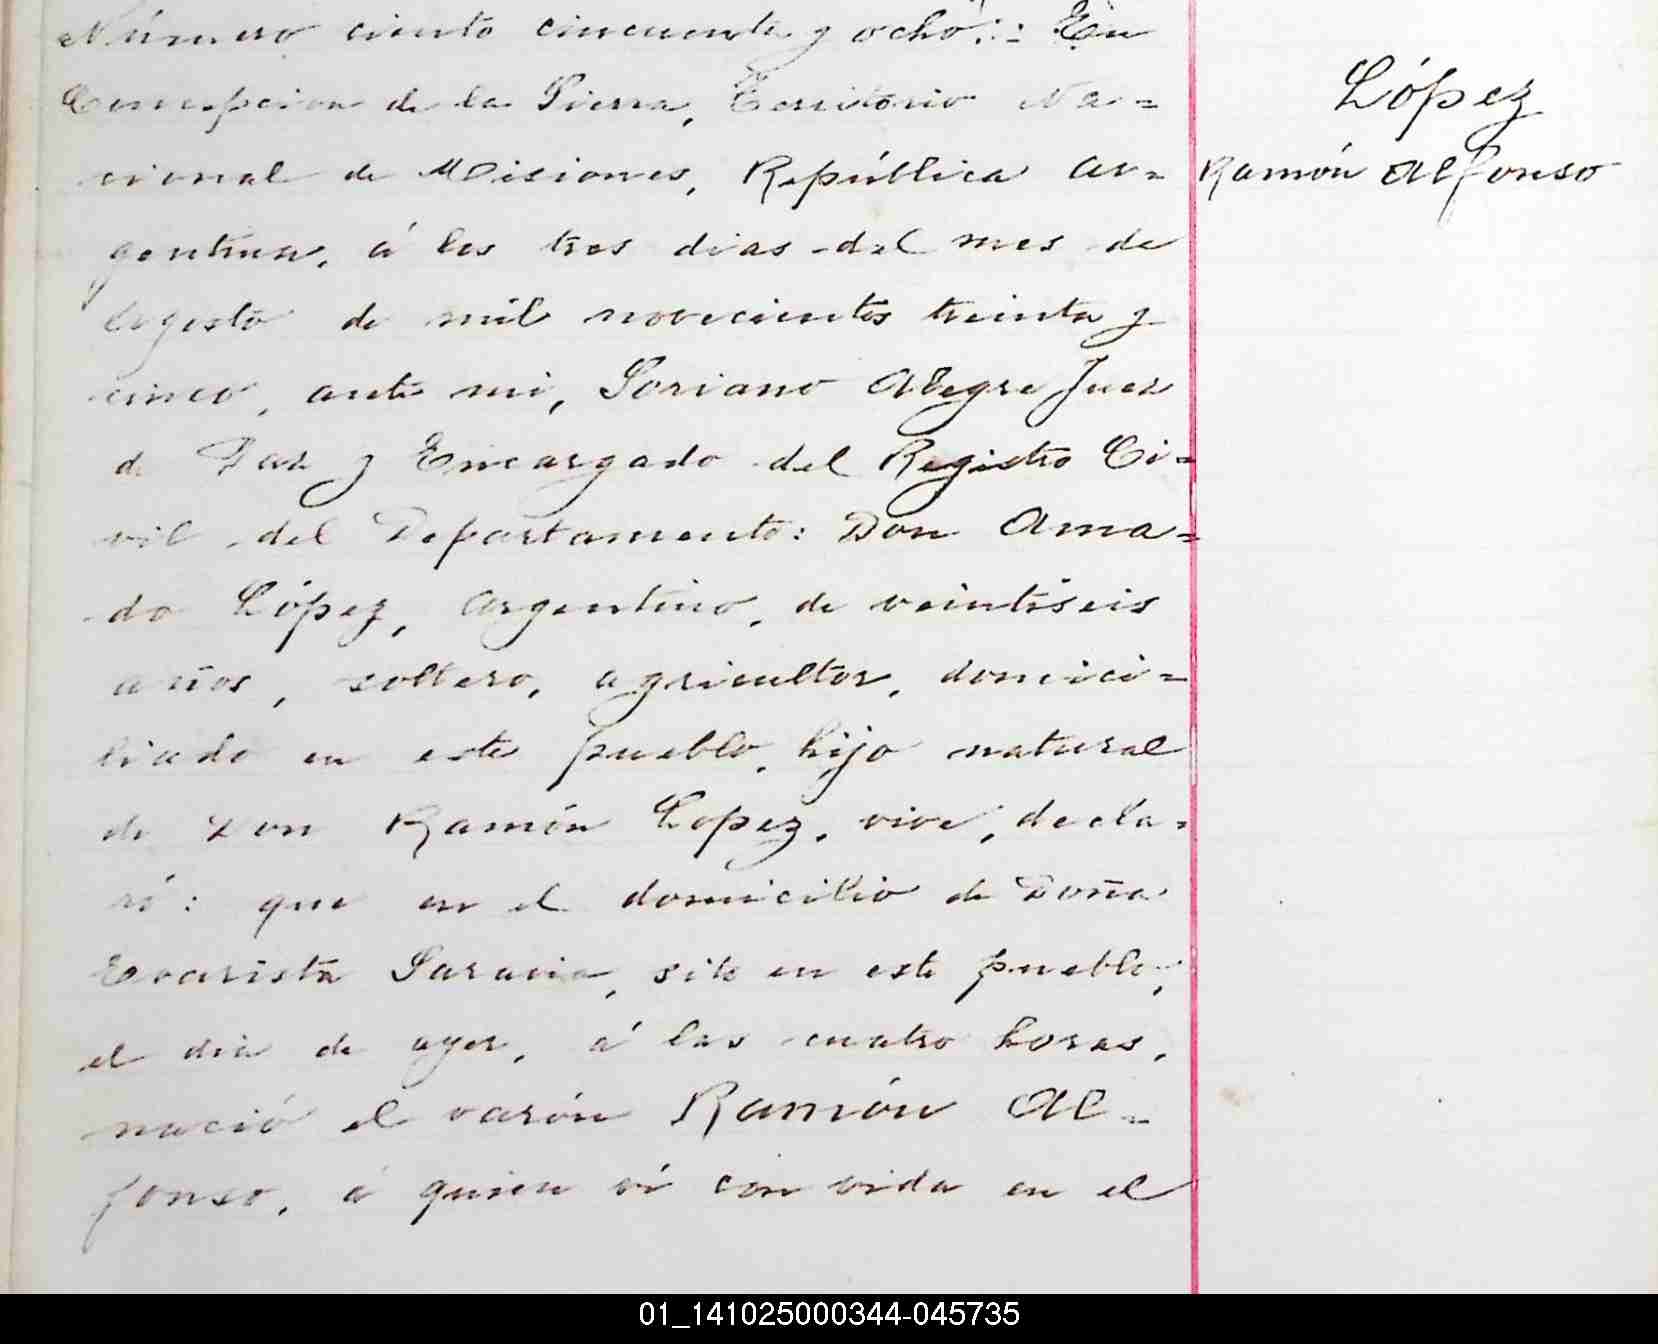 Número ciento cincuenta y ocho: En
López
Concepción de la Sierra, Territorio Na=
cional de Misiones, República Ar=
Ramón Alfonso
gentina, á los tres dias del mes de
Agosto de mil novecientos treinta y
cinco, ante mi, Soriano Alegre Juez
de Paz y Encargado del Registro Ci=
vil del Departamento: Don Ama=
do López, argentino, de veintiseis
años, soltero, agricultor, domici=
liado en este pueblo, hijo natural
de Don Ramón Lopez, vive, decla=
ró: que en el domicilio de Doña
Evarista Saravia, sito en este pueblo,
el dia de ayer, á las cuatro horas,
nació el varón Ramón Al=
fonso, á quien ví con vida en el
01_141025000344-045735